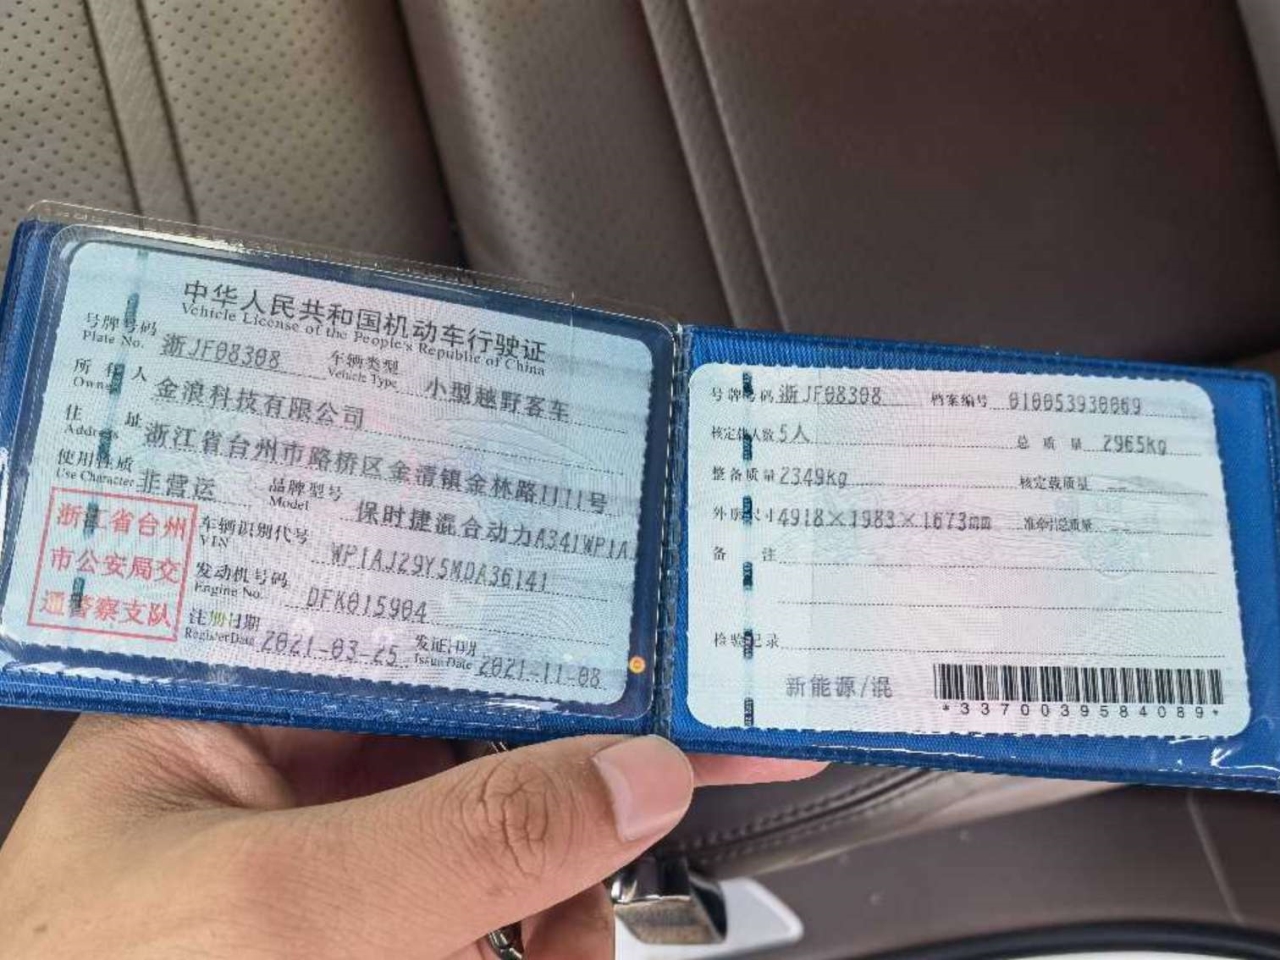 中华人民共和国机动车行驶证
Vehicle License of the People's Republic of China
号牌号码 浙JF08308 车辆类型 小型越野客车
Plate No. Vehicle Type
所有人 金浪科技有限公司
Owner
住址 浙江省台州市路桥区金清镇金林路1111号
Address
使用性质 非营运 品牌型号 保时捷混合动力A341WP1A
Use Character Model
浙江省台州
市公安局交
通警察支队
车辆识别代号 WP1AJ29Y5MDA36141
VIN
发动机号码 DFK015904
Engine No.
注册日期 2021-03-25 发证日期 2021-11-08
Register Date Issue Date
号牌号码 浙JF08308 档案编号 010053930069
核定载人数 5人 总质量 2965kg
整备质量 2349kg 核定载质量 --
外廓尺寸 4918×1983×1673mm 准牵引总质量 --
备注
检验记录
新能源/混
*3370039584089*